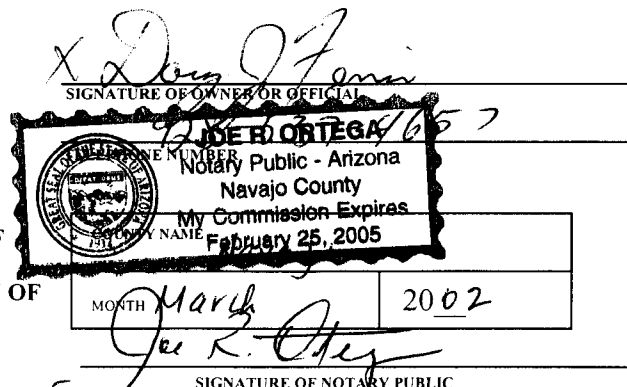 X Doug J
SIGNATURE OF OWNER OR OFFICIAL
4657
PHONE NUMBER
JOE R. ORTEGA
Notary Public - Arizona
Navajo County
My Commission Expires
February 25, 2005
GREAT SEAL OF THE STATE OF ARIZONA
1912
COUNTY NAME
OF
MONTH March
2002
Joe R. Ortega
SIGNATURE OF NOTARY PUBLIC